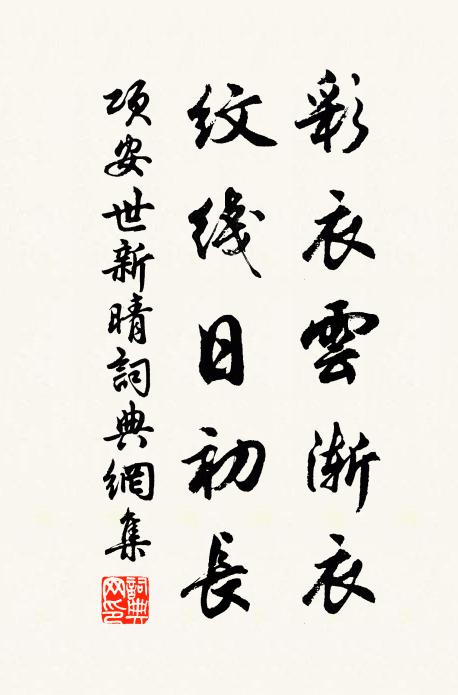 彩衣雲漸衣
紋綫日初長
項安世新晴詞典網集
詞典网印